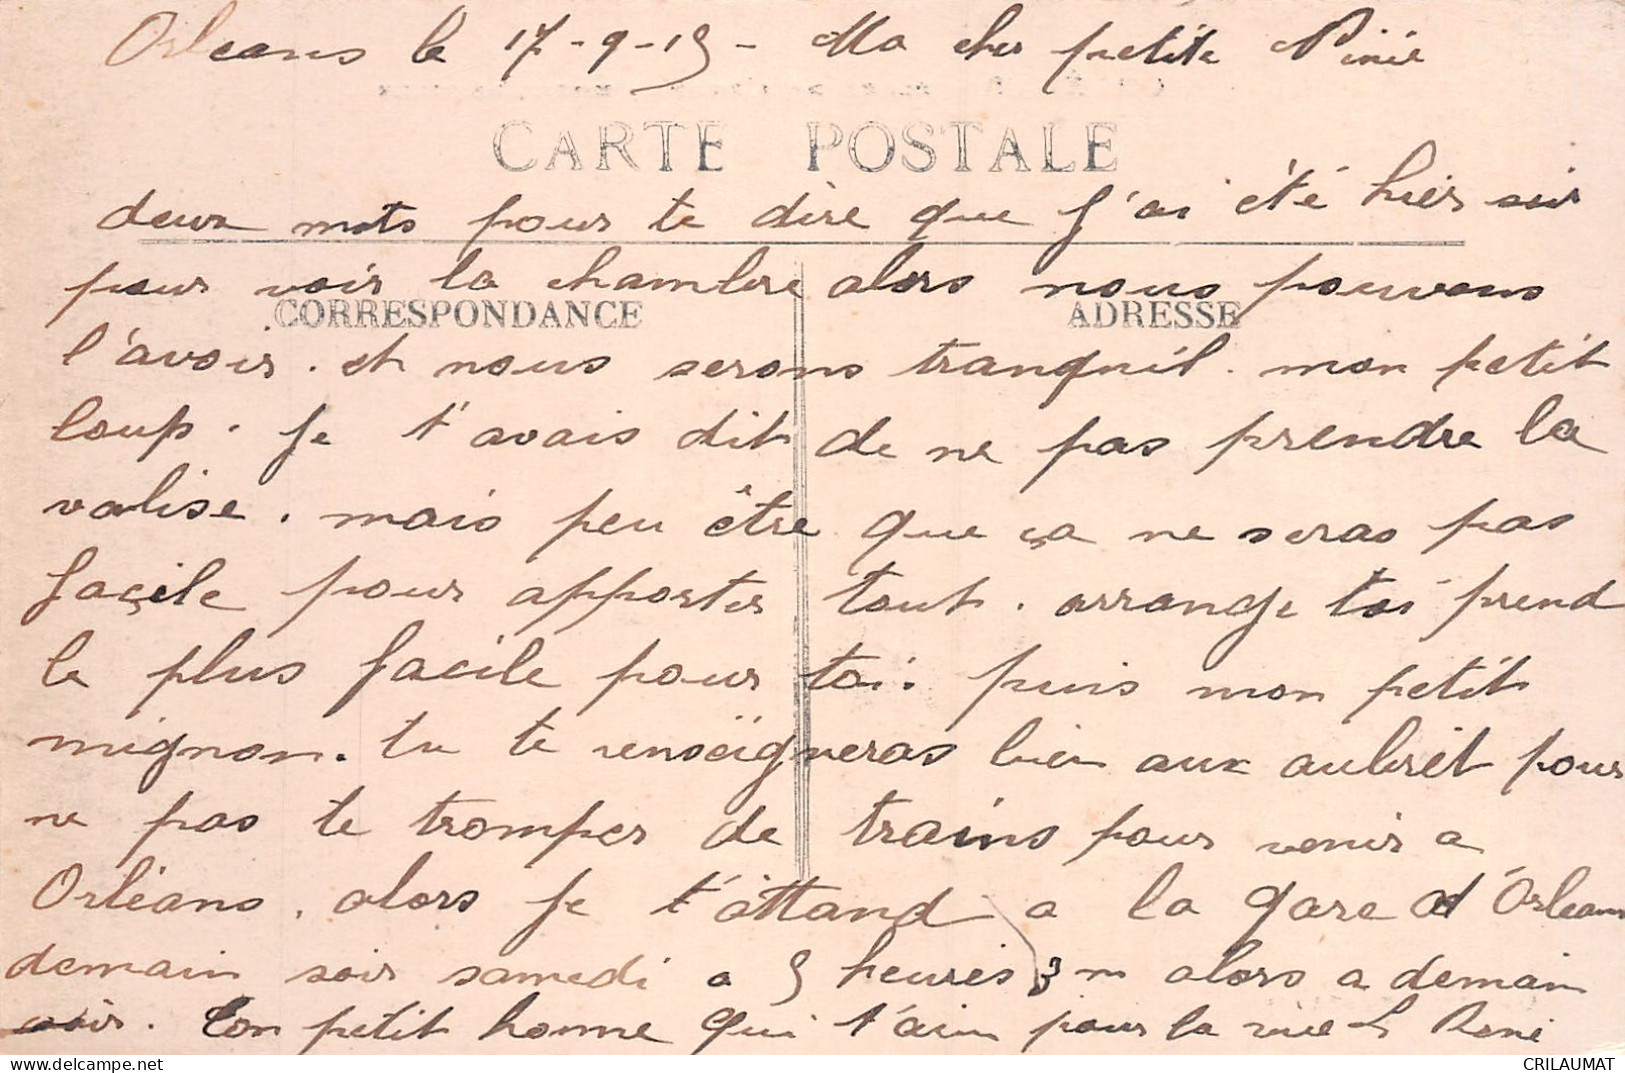 Orleans le 17-9-15 - Ma cher petite Ninie
CARTE POSTALE
deux mots pour te dire que j'ai été hier soir
pour voir la chambre alors nous pouvons
CORRESPONDANCE
ADRESSE
l'avoir. et nous serons tranquil. mon petit
loup. je t'avais dit de ne pas prendre la
valise. mais peu être que ça ne seras pas
façile pour apporter tout. arrange toi prend
le plus facile pour toi. puis mon petit
mignon. tu te renseigneras bien aux aubret pour
ne pas te tromper de trains pour venir a
Orléans. alors je t'attand a la gare d'Orleans
demain soir samedi a 9 heures 3 m alors a demain
soir. ton petit homme qui t'aim pour la vie René
CRILAUMAT